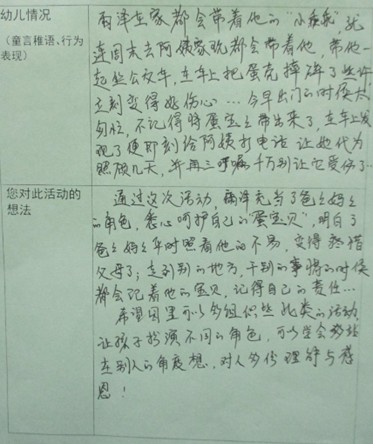 幼儿情况
（童言稚语、行为
表现）
雨泽在家都会带着他的“小乖乖”，就
连周末去阿姨家玩都会带着他，带他一
起坐公交车，在车上把蛋壳摔碎了些许
立刻变得好伤心…今早出门的时候太
匆忙，不记得将蛋宝宝带出来了，在车上发
现了便即刻给阿姨打电话让她代为
照顾几天，并再三叮嘱千万别让它受伤了…
您对此活动的
想法
通过这次活动，雨泽充当了爸爸妈妈
的角色，悉心呵护自己的“蛋宝贝”，明白了
爸爸妈妈平时照看他的不易，变得
父母了；走到别的地方，干别的事情的时候
都会记着他的宝贝，记得自己的责任…
希望园里可以多组织些此类的活动
让孩子扮演不同的角色，可以学会多站
在别人的角度想，对人多些理解与感
恩！